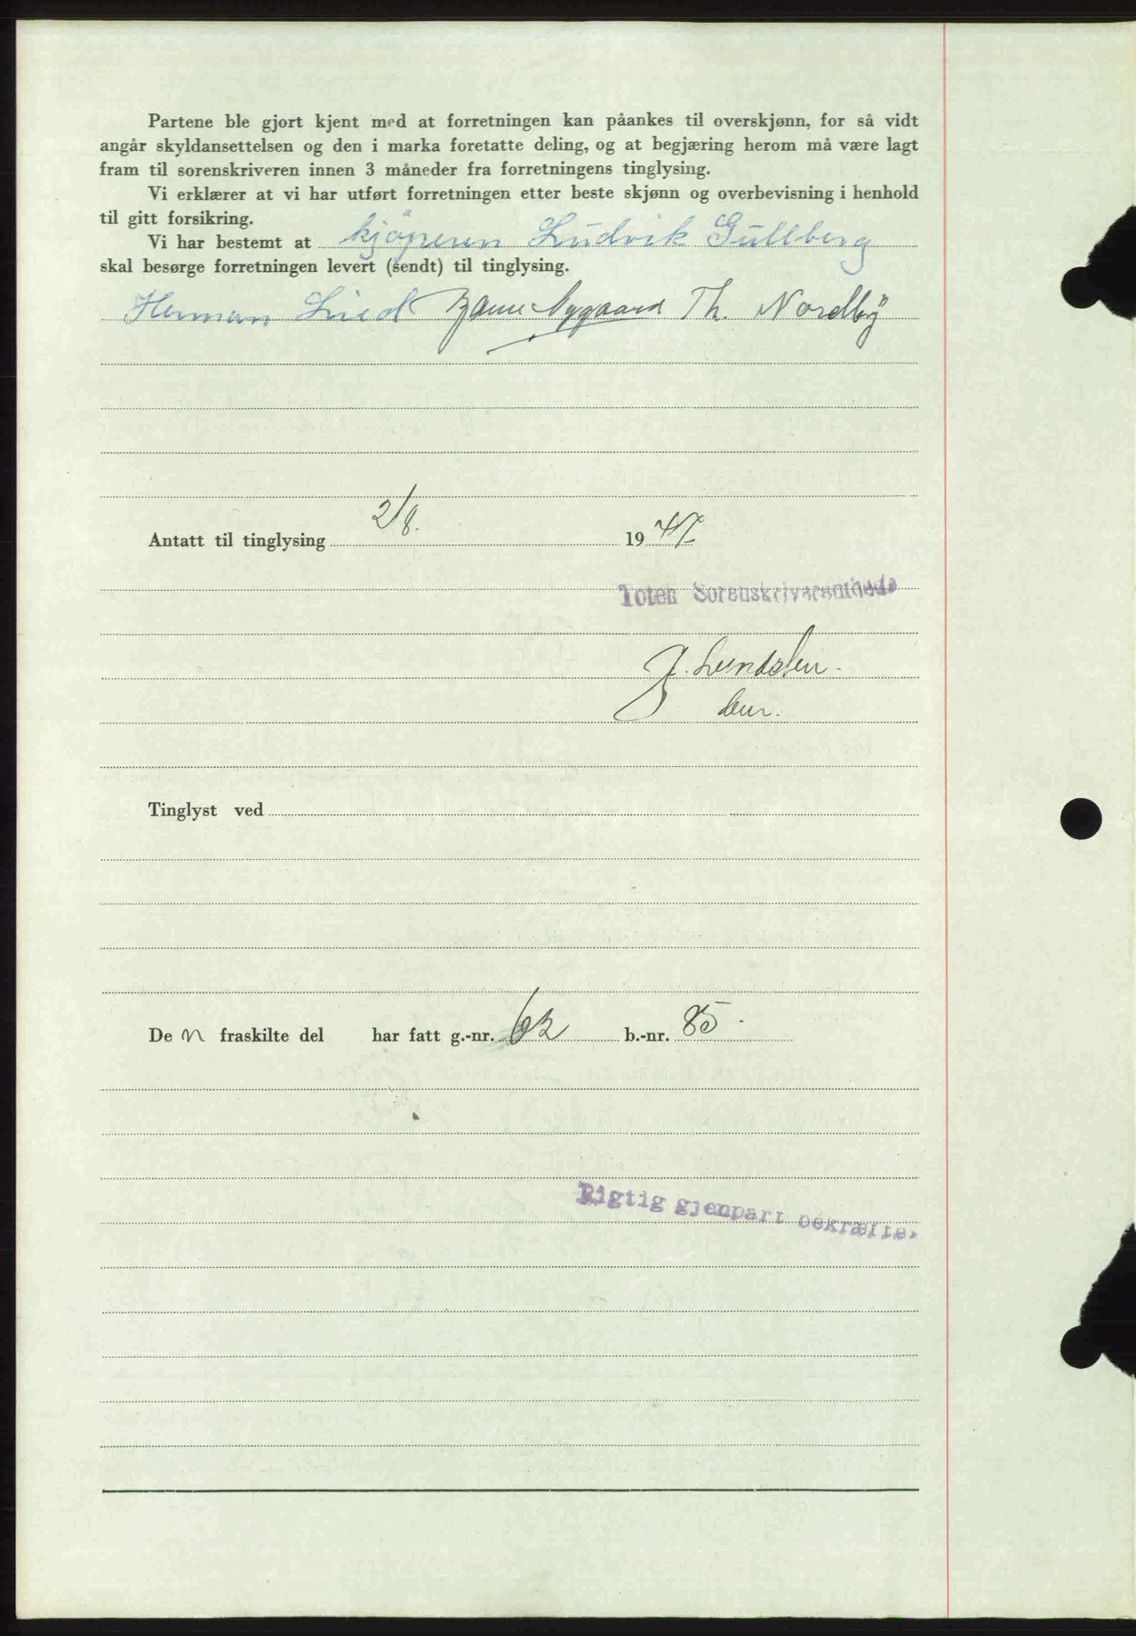 Partene ble gjort kjent med at forretningen kan påankes til overskjønn, for så vidt
angår skyldansettelsen og den i marka foretatte deling, og at begjæring herom må være lagt
fram til sorenskriveren innen 3 måneder fra forretningens tinglysing.
Vi erklærer at vi har utført forretningen etter beste skjønn og overbevisning i henhold
til gitt forsikring.
Vi har bestemt at kjöperen Ludvik Gullberg
skal besørge forretningen levert (sendt) til tinglysing.
Herman Lied Nygaard Th. Nordby
Antatt til tinglysing 2/8. 1947
Toten Sorenskriverembede
J. Lundsten.
Tinglyst ved
De n fraskilte del har fatt g.-nr. 62 b.-nr. 85.
Rigtig gjenpart bekræftes